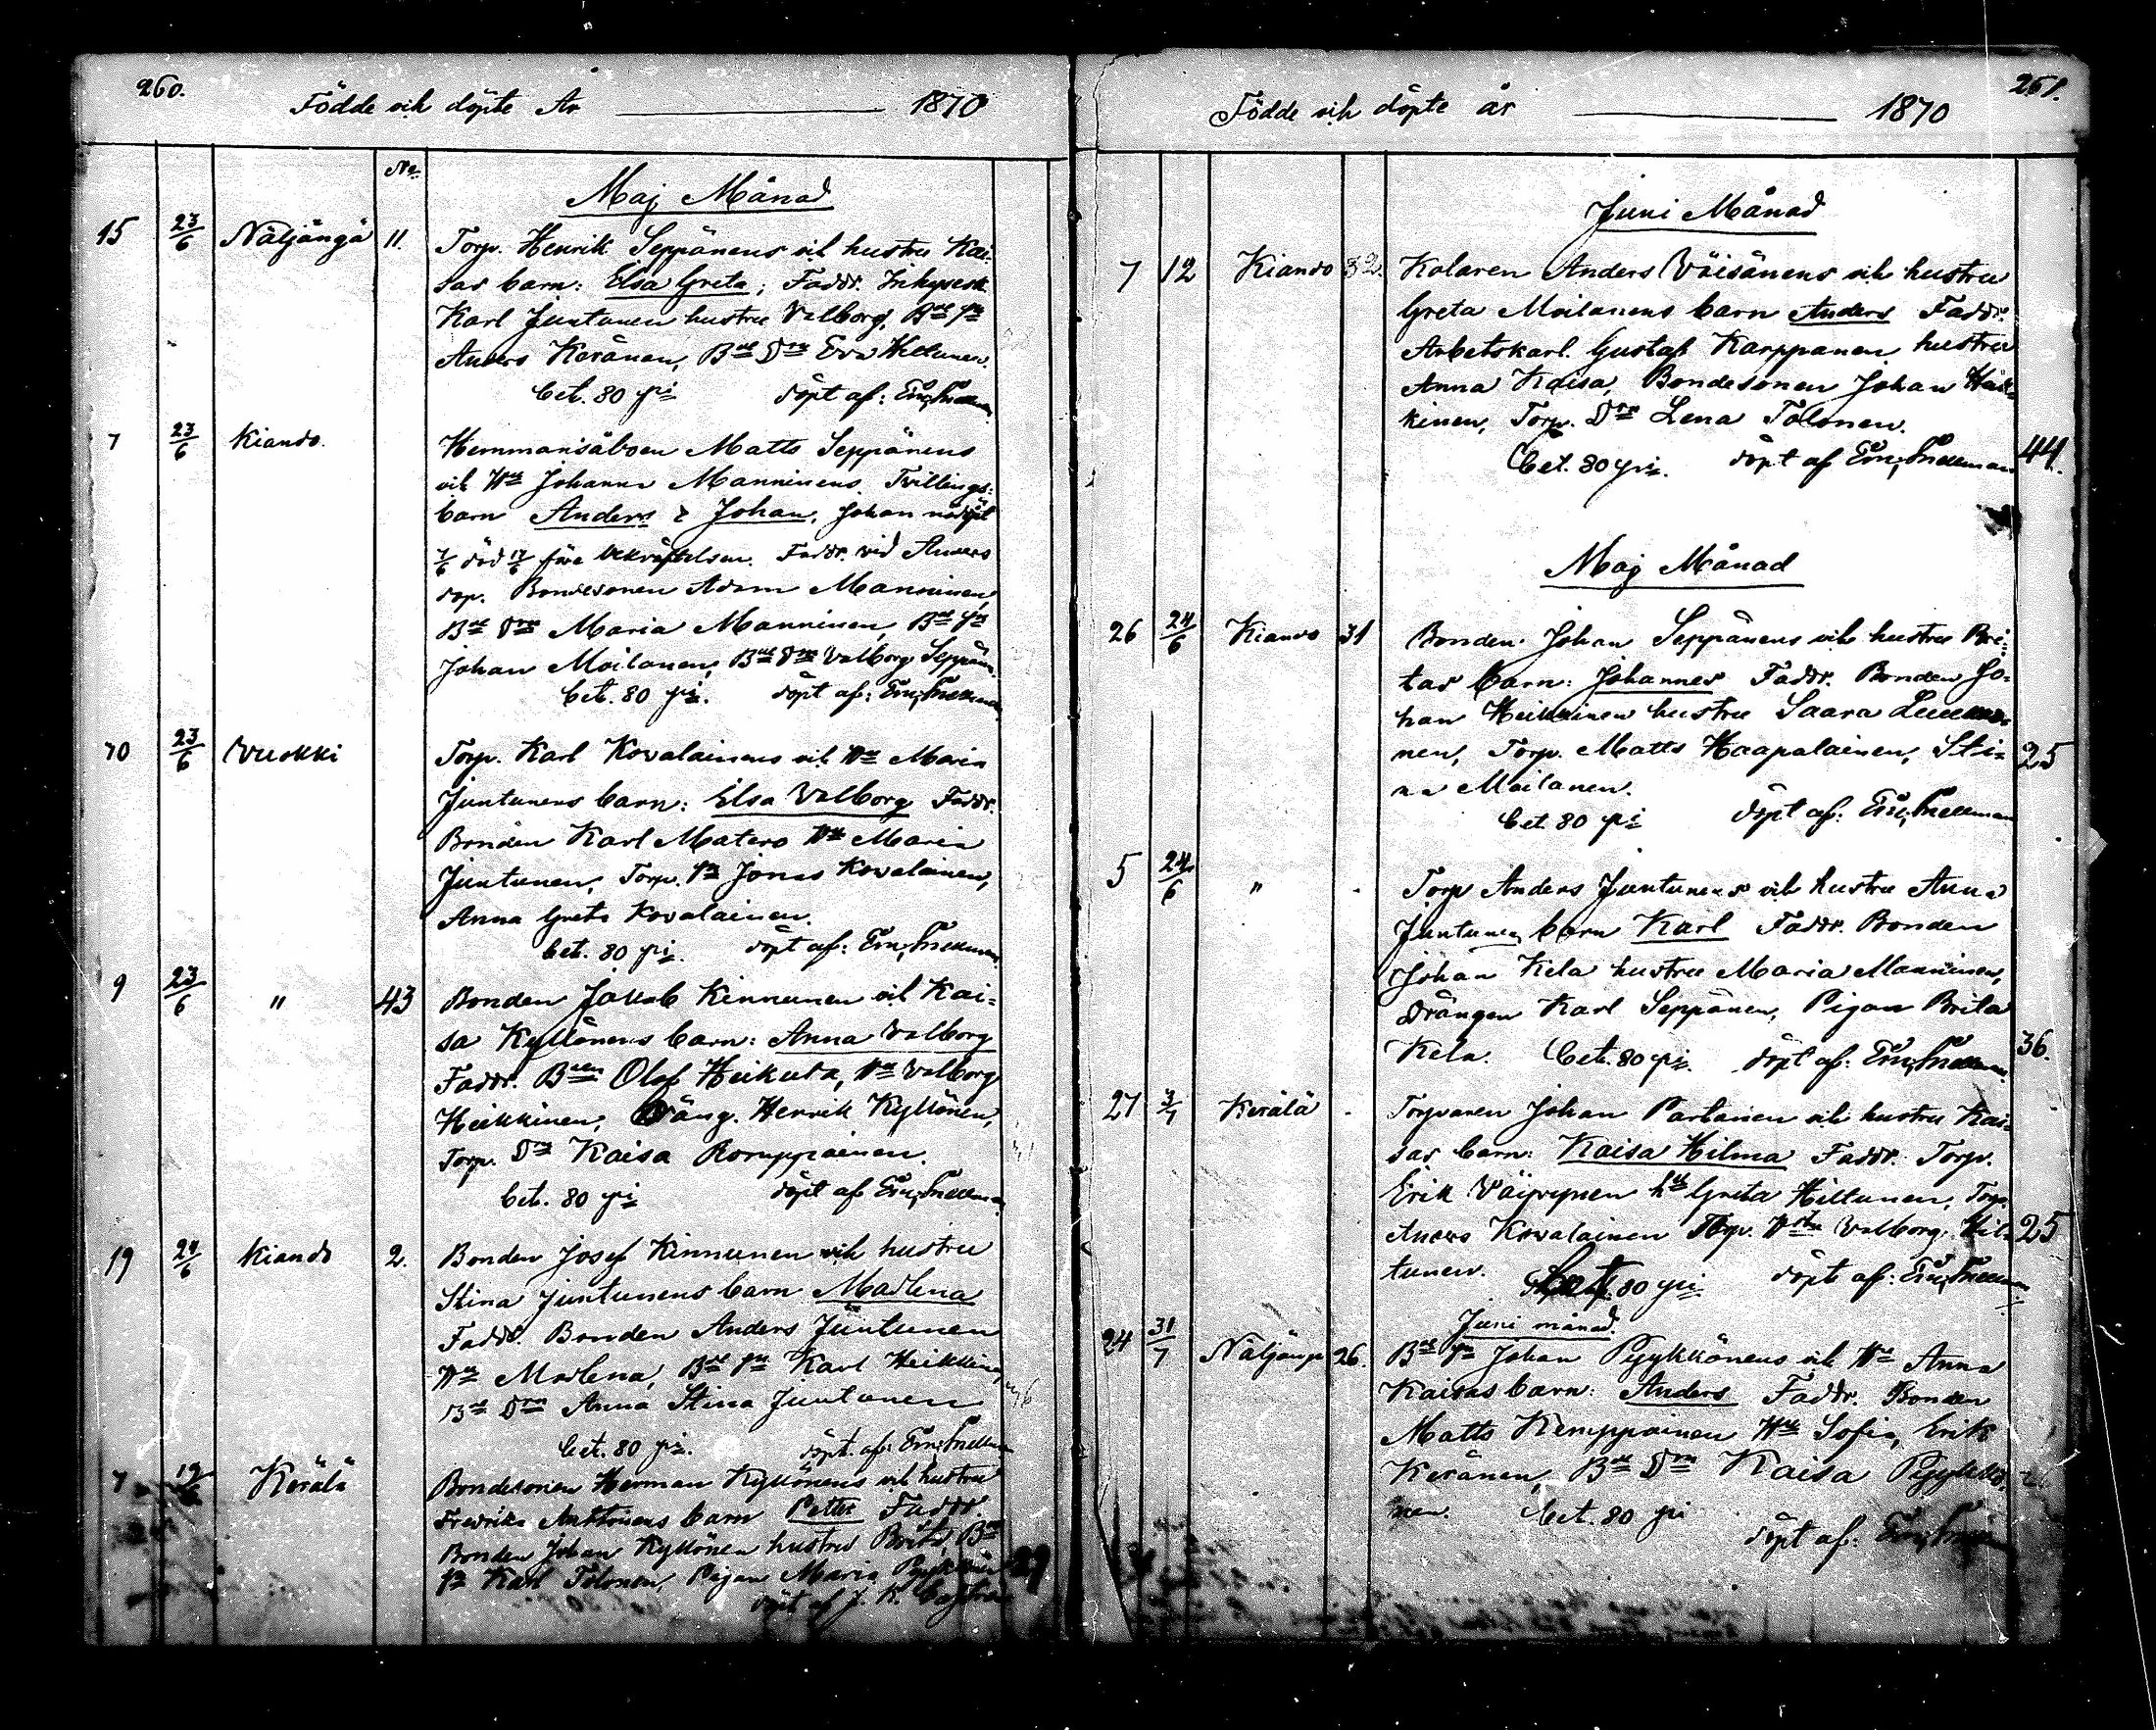 260.
Födde och döpte År 1870
No
Maj Månad
15 23/6 Näljängä 11. Torp. Henrik Seppänens och hustru Kai-
sas barn: Elsa Greta; Faddr. Inhyses
Karl Juntunen hustru Valborg, Bde Sn
Anders Keränen, Bde Dr Eva Heltunen.
bet. 80 pi döpt af: Em, Snellman
7 23/6 Kiando. Hemmansåboen Matts Seppänens
och Hu Johanna Manninens Tvillings-
barn Anders & Johan, Johan nöddöpt
7/6 död 17/6 före bekräftelsen. Faddr. vid Anders
dop. Bondesonen Adam Manninen,
Bde Dr Maria Manninen, Bde Sn
Johan Moilanen, Bde Dr Valborg Seppän
bet. 80 pi. döpt af: Em, Snellman
10 23/6 Vuokki Torp. Karl Kovalainens och Hu Maria
Juntunens barn: Elsa Valborg Faddr.
Bonden Karl Matero Hu Maria
Juntunen, Torp. Sn Jonas Kovalainen,
Anna Greta Kovalainen.
bet. 80 pi. döpt af: Em, Snellman
9 23/6 " 43 Bonden Jakob Kinnunen och Kai-
sa Kyllönens barn: Anna Valborg
Faddr. Olof Heikura, Hu Valborg
Heikkinen, Dräng. Henrik Kyllönen,
Torp. Dr Kaisa Romppainen.
bet. 80 pi döpt af Em, Snellman
19 24/6 Kiando 2. Bonden Josef Kinnunen och hustru
Stina Juntunens barn Madlena
Faddr. Bonden Anders Juntunen
Hu Madlena, Bde Sn Karl Heikkinen,
Bde Dr Anna Stina Juntunen
bet. 80 pi. döpt. af: Em, Snellman
7 Kerälä Bondesonen Herman Kyllönens och hustru
Fredrika Anttonens barn Petter Faddr.
Bonden Johan Kyllönen hustru Brita, Bde
Sn Karl Tolonen, Pigan Maria Pyykkönen 29
döpt af J. K.
261.
Födde och döpte år 1870
Juni Månad
7 12 Kiando 32. Kolaren Anders Väisänens och hustru
Greta Moilanens barn Anders Faddr.
Arbetskarl. Gustaf Karppanen hustru
Anna Kaisa, Bondesonen Johan Heik-
kinen, Torp. Dr Lena Tolonen.
bet. 80 pi. döpt af Em, Snellman 44.
Maj Månad
26 24/6 Kiando 31 Bonden Johan Seppänens och hustru Bri-
tas barn: Johannes Faddr. Bonden Jo-
han Heikkinen hustru Saara
nen, Torp. Matts Haapalainen, Sti- 25
na Moilanen.
bet 80 pi döpt af: Em, Snellman
5 24/6 " Torp Anders Juntunens och hustru Anna
Juntunen barn Karl Faddr. Bonden
Johan Kela hustru Maria Manninen,
Drängen Karl Seppänen, Pigan Brita
Kela. bet. 80 pi. döpt af: Em, Snellman 36.
27 3/7 Kerälä Torparen Johan Partanen och hustru Kai-
sas barn: Kaisa Hilma Faddr. Torp.
Erik Väyrynen hu Greta Hiltunen, Torp.
Anders Kovalainen Torp. Valborg Hil- 25
tunen. bet. 80 pi döpt af: Em, Snellman
Juni månad.
24 31/7 Näljängä 26. Bde Sn Johan Pyykkönens och Hu Anna
Kaisas barn: Anders Faddr. Bonden
Matts Kemppainen Hu Sofia, Erik
Keränen, Bde Dr Kaisa Pyykkö-
nen. bet. 80 pi
döpt af: Em, Snellman